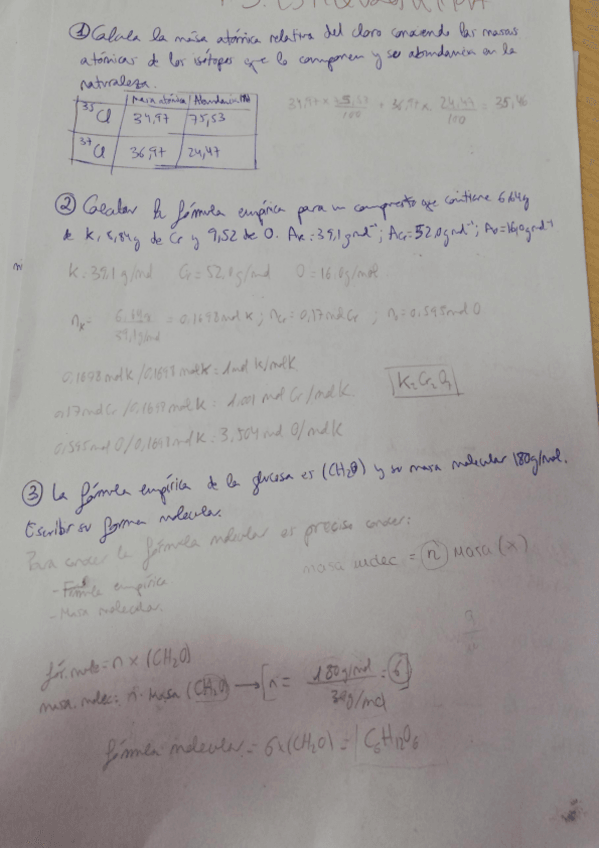 ① Calcula la masa atómica relativa del cloro conociendo las masas
atómicas de los isótopos que lo componen y su abundancia en la
naturaleza.
Masa atómica Abundancia (%)
³⁵Cl 34,97 75,53
³⁷Cl 36,97 24,47
34,97 x 75,53/100 + 36,97 x 24,47/100 = 35,46
② Calcular la fórmula empírica para un compuesto que contiene 6,64g
de K, 8,84g de Cr y 9,52 de O. AK=39,1 gmol⁻¹; ACr=52,0 gmol⁻¹; AO=16,0 gmol⁻¹
K=39,1 g/mol Cr=52,0 g/mol O=16.0g/mol
nK= 6,64g/39,1g/mol = 0,1698 mol K; nCr=0,17 mol Cr; nO=0,595 mol O
0,1698 mol K/0,1698 mol K=1 mol K/mol K
0,17 mol Cr/0,1698 mol K= 1.001 mol Cr/mol K.
0,595 mol O/0,1698 mol K= 3,504 mol O/mol K
K₂Cr₂O₇
③ La fórmula empírica de la glucosa es (CH₂O) y su masa molecular 180g/mol.
Escribir su forma molecular.
Para conocer la fórmula molecular es preciso conocer:
- Fórmula empírica
- Masa molecular.
masa molec = n masa (x)
fór. molec = n x (CH₂O)
masa. molec = n · masa (CH₂O) → [n = 180g/mol / 30g/mol = 6]
fórmula molecular = 6x(CH₂O) = C₆H₁₂O₆